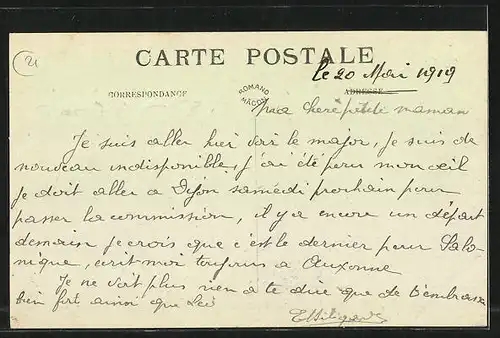 CARTE POSTALE
le 20 Mai 1919
CORRESPONDANCE
ADRESSE
ROMAND
MACON
Ma chere petite maman
Je suis aller hier voir le major, je suis de
nouveau indisponible, j'ai été pour mon oeil
je doit aller a Dijon samedi prochain pour
passer la commission, il y a encore un départ
demain je crois que c'est le dernier pour Salo-
nique, ecrit moi toujours a Auxonne
Je ne voit plus rien a te dire que de t'embrasse
bien fort ainsi que